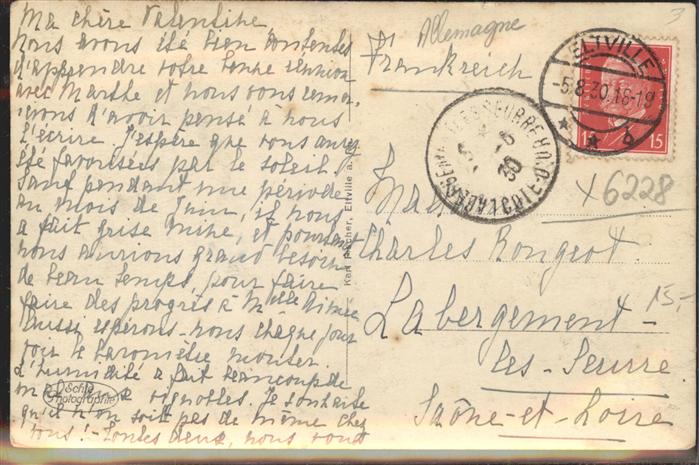 Ma chère Valentine
Nous avons été bien contentes
d'apprendre votre bonne réunion
avec Marthe et nous vous remer-
cions d'avoir pensé à nous
l'écrire. J'espère que vous aurez
été favorisées par le soleil.
Sauf pendant une période
au mois de Juin, il nous
a fait grise mine, et pourtant
nous aurions grand besoin
de beau temps, pour faire
faire des progrès à Melle Aimée
Aussi espérons-nous chaque jour
voir le baromètre monter
L'humidité a fait beaucoup de
vignobles. Je souhaite
qu'il n'en soit pas de même chez
vous! - Toutes deux, nous vous
Echte
Photographie
Eltville a.
Allemagne
Frankreich
3
ELTVILLE
-5.8.30.18-19
* * b
15
30
6228
Charles Rongeot
Labergement-
les-Seurre
Saône-et-Loire
15,-